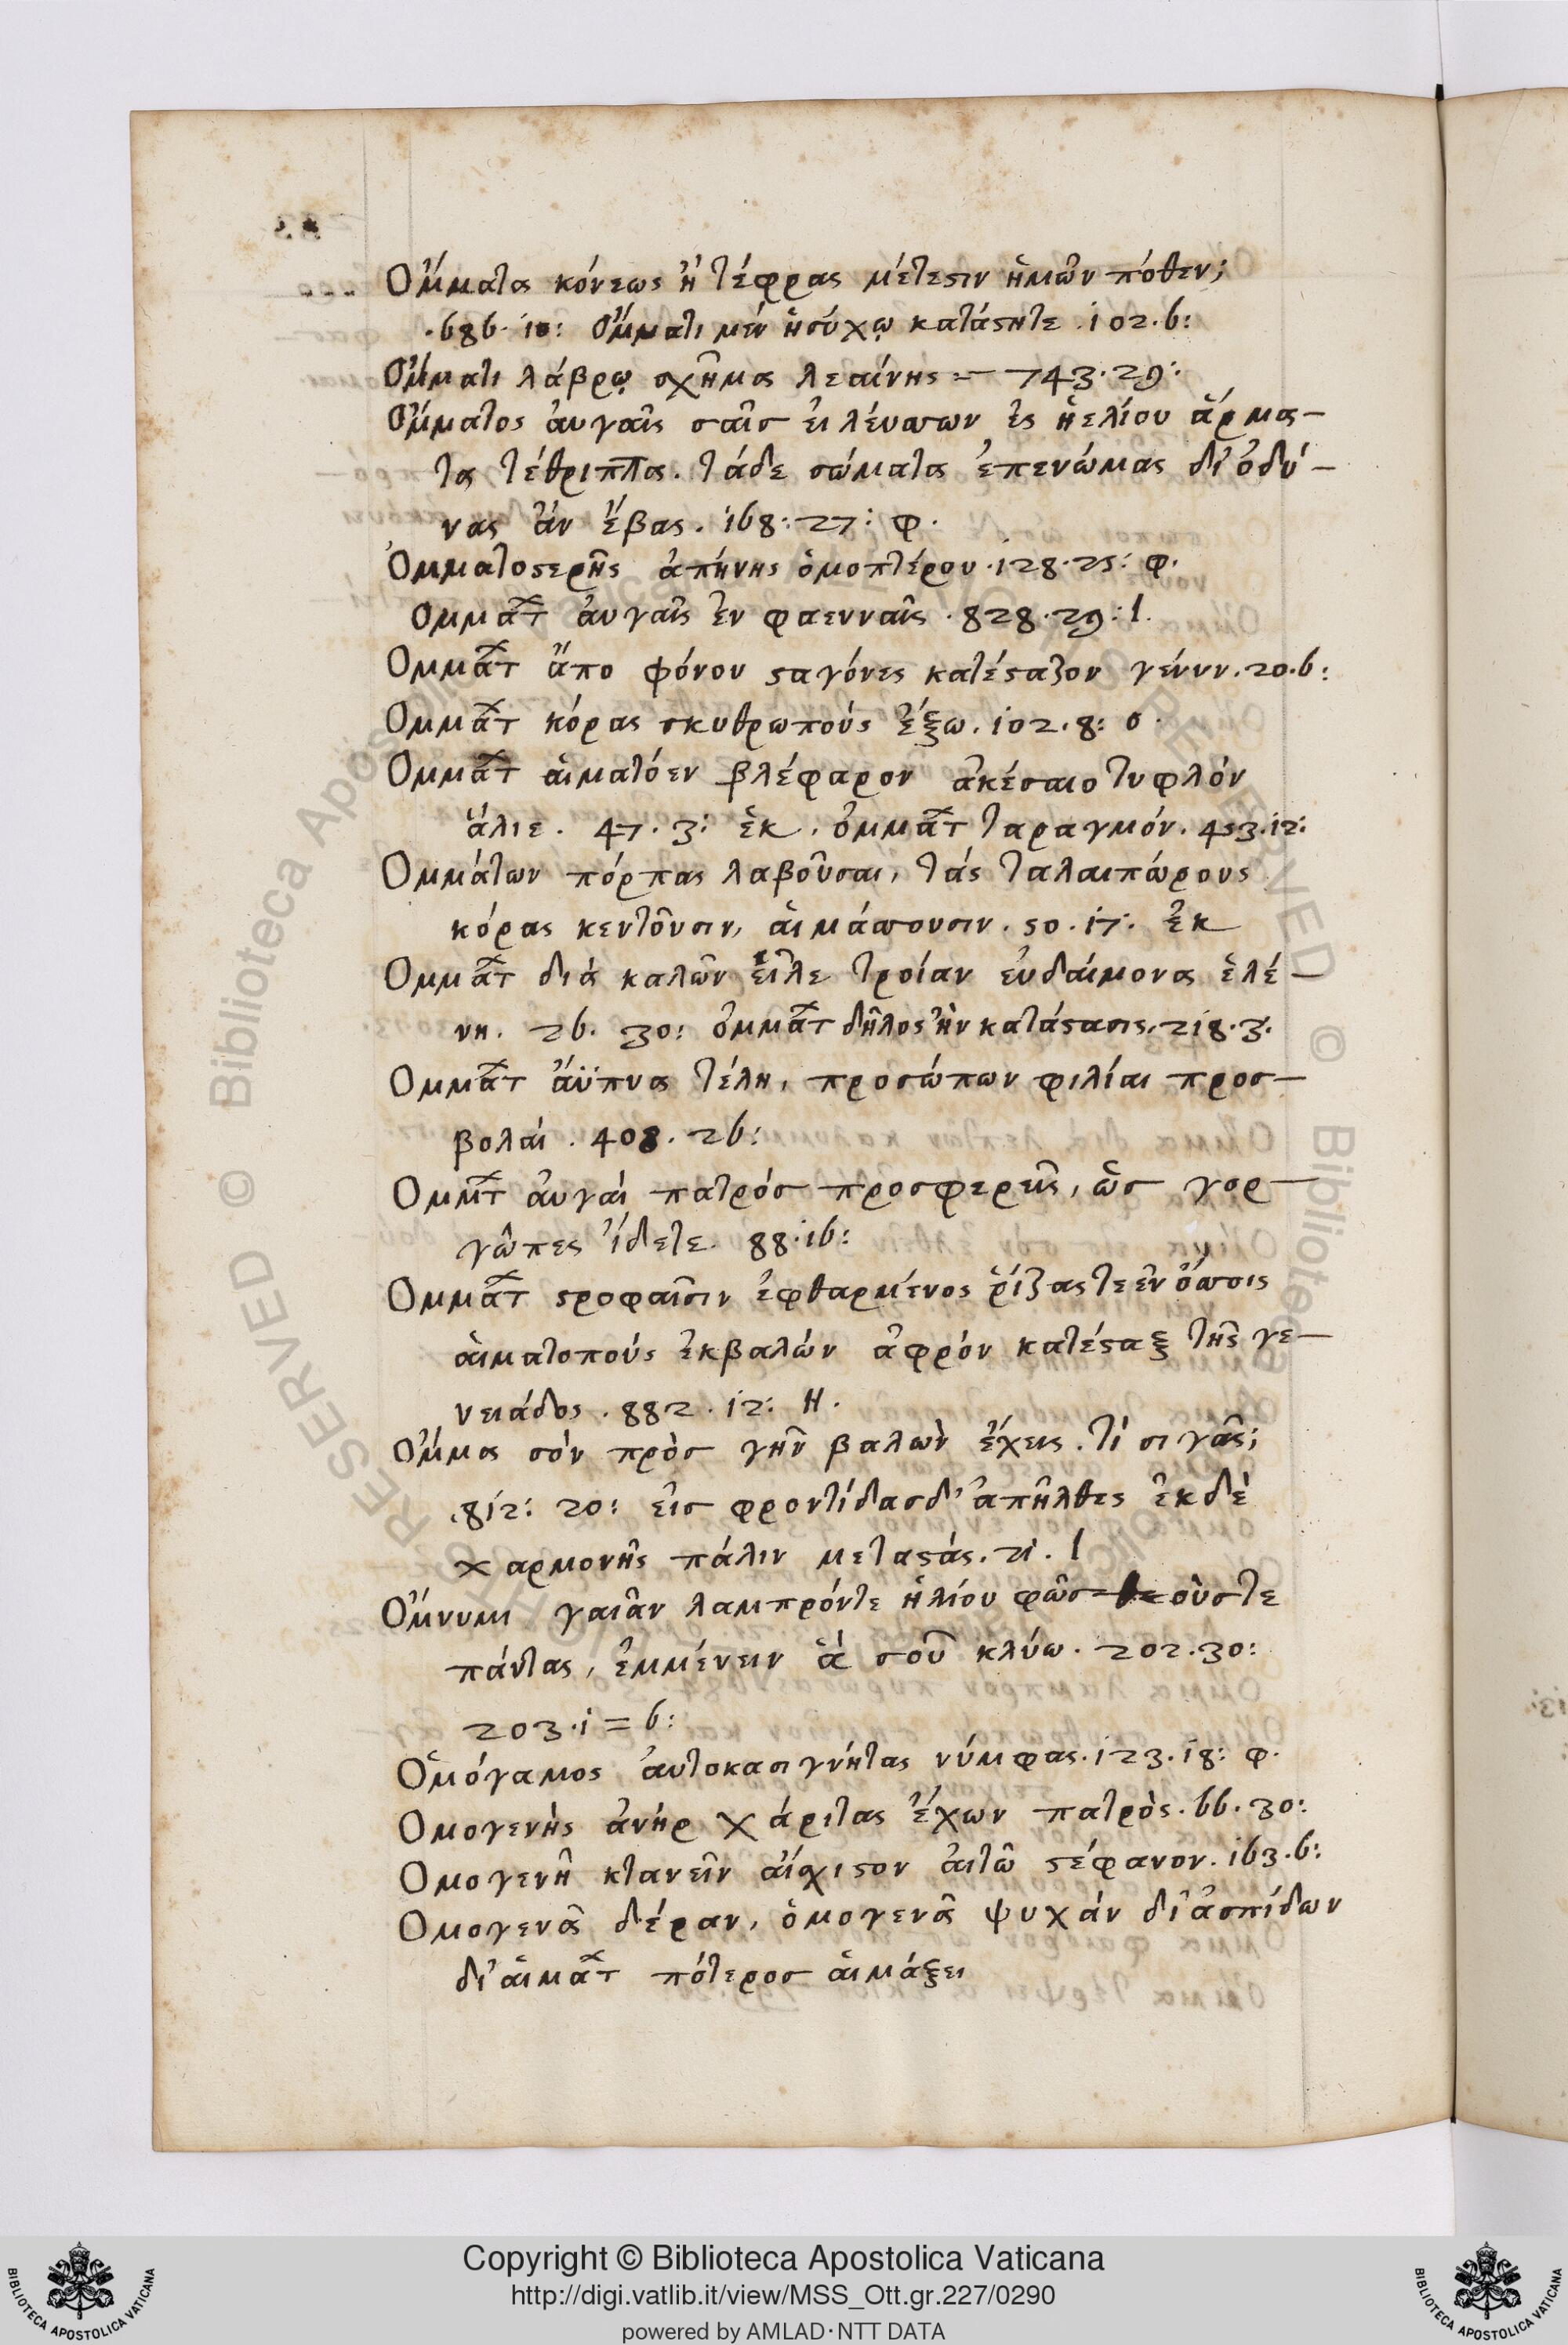 Ὄμματα κόνεως ἢ τέφρας μέτεστιν ἡμῶν πόθεν;
.686. 10: Ὄμματι μέν ἡσύχῳ κατάστητε . 102. 6:
Ὄμματι λάβρῳ σχῆμα λεαίνης = 743. 29:
Ὄμματος ἀυγαῖς σαῖσ ἐι λέυσσων ἐς ἡελίου ἅρμα-
τα τέθριππα. τάδε σώματα ἐπενώμας δι' ὀδύ-
νας ἂν ἔβας. 168: 27: φ.
Ὀμματοστερῆς ἀπήνης ὁμοπτέρου. 128. 25: φ.
Ομμάτ ἀυγαῖς ἐν φαενναῖς . 828. 29: l.
Ομμάτ ἄπο φόνου σταγόνες κατέσταζον γένυν. 20. 6:
Ομμάτ κόρας σκυθρωπούς ἔξω. 102. 8: σ.
Ομμάτ ἁιματόεν βλέφαρον ἀκέσαιο τυφλόν
ἅλιε. 47. 3: ἐκ. ὀμμάτ ταραγμόν. 453. 12:
Ομμάτων πόρπας λαβοῦσαι, τάς ταλαιπώρους
κόρας κεντοῦσιν, ἁιμάσσουσιν. 50. 17: ἐκ
Ομμάτ διά καλῶν εἷλε τροίαν ἐυδαίμονα ἑλέ-
νη. 26. 30: ὀμμάτ δῆλος ἦν κατάστασις. 218. 3.
Ομμάτ ἄϋπνα τέλη, προσώπων φιλίαι προσ-
βολαί. 408. 26:
Ομμτ ἀυγαί πατρόσ προσφερεῖς, ὡσ γορ-
γῶπες ἴδετε. 88. 16:
Ομμάτ στροφαῖσιν ἐφθαρμένος ῥίζας τε ἐν ὄσσοις
ἁιματοπούς ἐκβαλών ἀφρόν κατέσταξ τῆς γε-
νειάδος. 882. 12: Η.
Ὄμμα σόν πρὸσ γῆν βαλὼν ἔχεις. τί σιγᾶς;
.812: 20: ἐισ φροντίδασ δ' ἀπῆλθες ἐκ δὲ
χαρμονῆς πάλιν μεταστάς. 21. l
Ὄμνυμι γαῖαν λαμπρόντε ἡλίου φῶσ θεούστε
πάντας, ἐμμένειν ἅ σοῦ κλύω. 202. 30:
203. 1 = 6:
Ὁμόγαμος ἀυτοκασιγνήτας νύμφας. 123. 18: φ.
Ομογενὴς ἀνήρ χάριτας ἔχων πατρὸς. 66. 30:
Ομογενῆ κτανεῖν αἴσχιστον ἀιτῶ στέφανον. 163. 6:
Ομογενᾶ δέραν, ὁμογενᾶ ψυχάν δι' ἀσπίδων
δι' ἁιμάτ πότεροσ ἁιμάξει
Copyright © Biblioteca Apostolica Vaticana
http://digi.vatlib.it/view/MSS_Ott.gr.227/0290
powered by AMLAD·NTT DATA